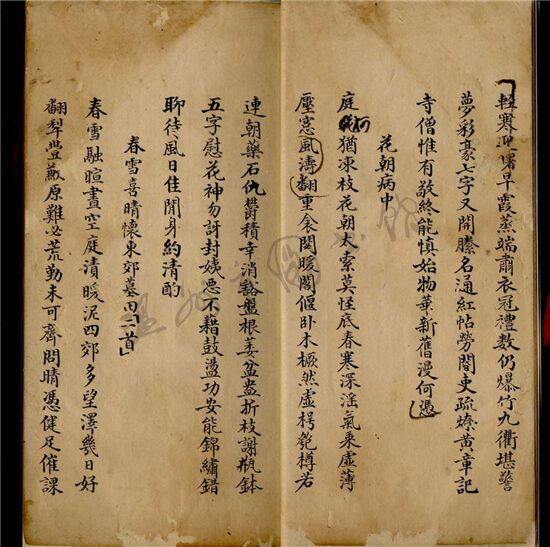 輕寒迎曙早霞蒸端肅衣冠禮數仍爆竹九衢堪警
夢彩豪七字又開縢名通紅帖勞閽吏疏燎黃章記
寺僧惟有敬終能慎始物華新舊漫何憑
花朝病中
庭柯猶凍枝花朝太索莫怪底春寒深淫氣乘虛薄
壓窓風濤翻重衾閟暖閣偃臥木橛然虛枵匏樽若
連朝藥石仇鬱積幸消豁盤根萎盆盎折枝謝瓶鉢
五字慰花神勿訝封姨惡不藉鼓盪功安能錦繡錯
聊待風日佳閒身約清酌
春雪喜晴懷東郊墓田二首
春雪融暄晝空庭漬暖泥四郊多望澤幾日好
翻犁豐歉原難必荒勤未可齊問晴憑健足催課